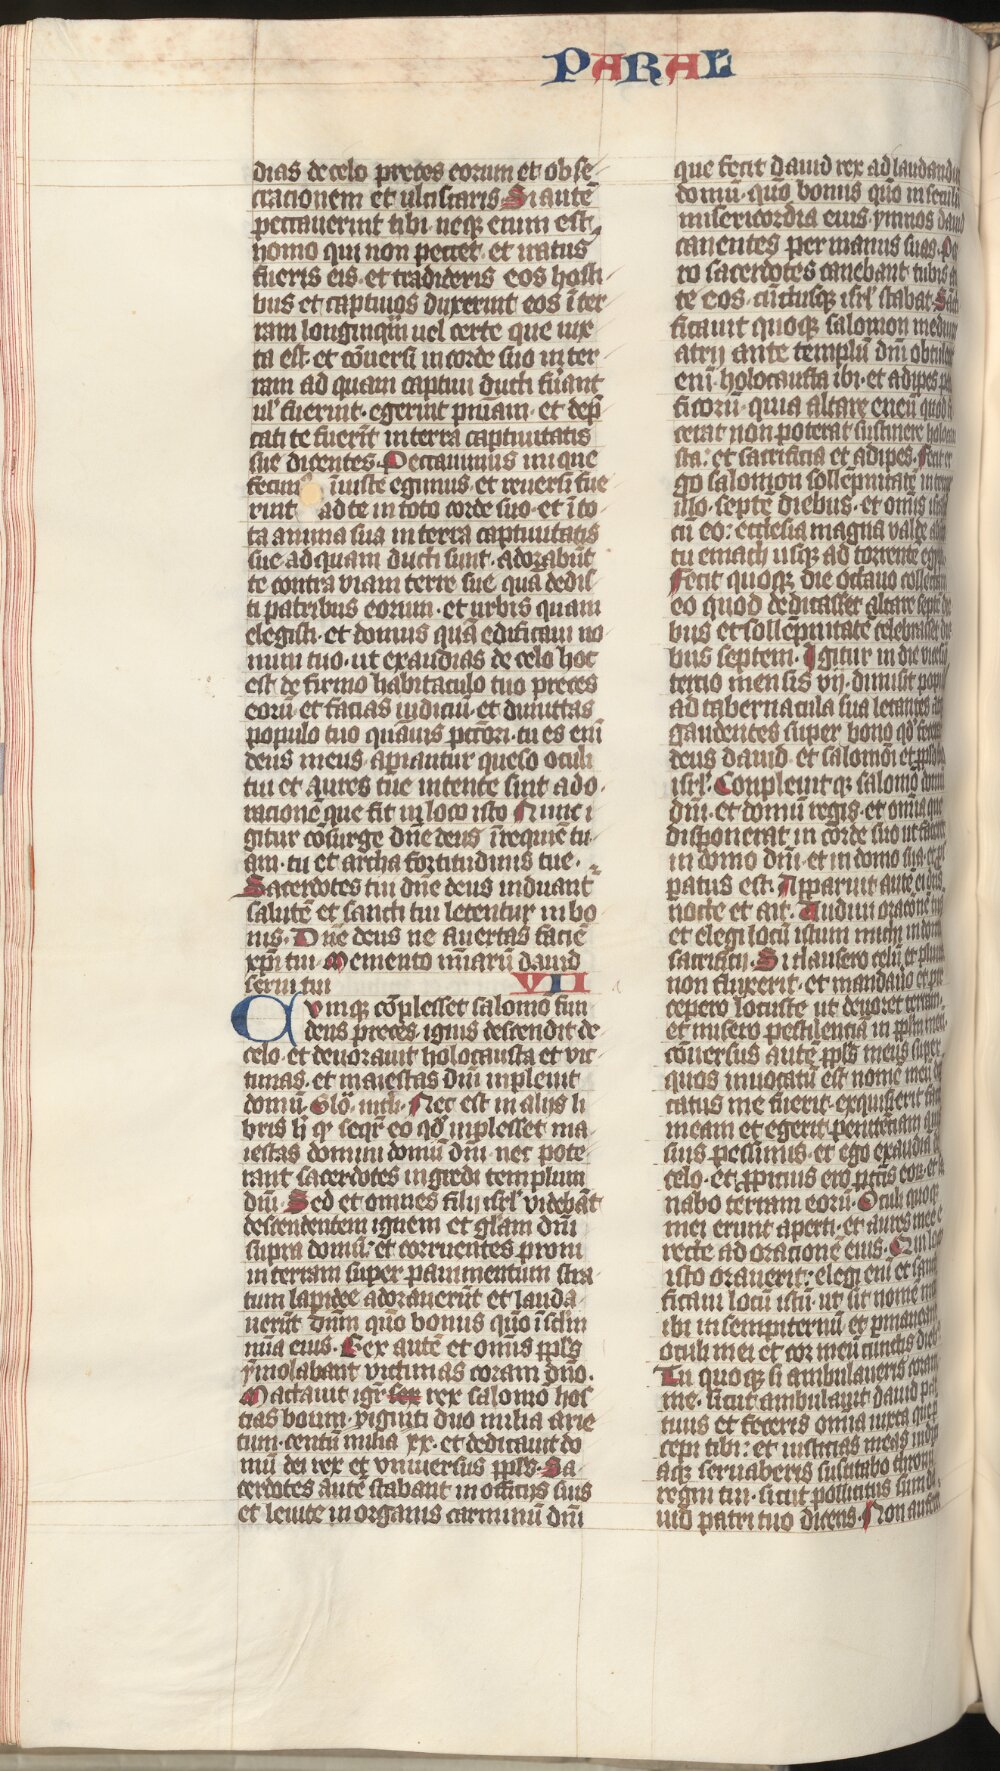 PARAL
dias de celo preces eorum et obse
cracionem et ulciscaris Si autē
peccauerint tibi· neqꝫ enim est
homo qui non peccet· et iratus
fueris eis· et tradideris eos hosti
bus et captiuos duxerint eos ī ter
ram longinqm̄ uel certe que iux
ta est· et cōuersi in corde suo in ter
ram ad quam captiui ducti fu͛ant
ul' fuerint· egerint pniam· et dep̄
cati te fuerīt in terra captiuitatis
sue dicentes· Peccauimus inique
fecim iniuste egimus· et reuersi fue
rint ad te in toto corde suo· et ī to
ta anima sua in terra captiuitatis
sue ad quam ducti sunt· adorabūt
te contra viam terre sue· quā dedis
ti patribus eorum· et urbis quam
elegisti· et domus quā edificaui no
mini tuo· ut exaudias de celo hoc
est de firmo habitaculo tuo preces
eorū· et facias iudiciū· et dimittas
populo tuo quāuis pctōri· tu es enī
deus meus· apiantur queso oculi
tui et Aures tue intente sint ad o
racionē que fit in loco isto Nunc i
gitur cōsurge dn̄e deus ī requiē tu
am· tu et archa fortitudinis tue·
Sacerdotes tui dn̄e deus induant
salutē et sancti tui letentur in bo
nis· Dn̄e deus ne auertas faciē
xpī tui· Memento mīaru dauid
serui tui VII
Cvmqꝫ cōplesset salomō fun
dens preces· ignis descendit de
celo· et deuorauit holocausta et vic
timas· et maiestas dn̄i inpleuit
domū
Nec est in alijs li
bris
eo qd̄ inplesset ma
iestas domini domū dn̄i· nec pote
rant sacerdotes ingredi templum
dn̄i· Sed et omnes filij isrl' videbāt
descendentem ignem et gl̄am dn̄i
supra domū· et corruentes proni
in terram super pauimentum stra
tum lapide adorauerūt et lauda
uerūt dn̄m quō bonus quō ī sclm̄
mīa eius· Rex autē et omīs ppls
ymolabant victimas coram dn̄o·
Mactauit igr̄ rex salomō hos
tias boum· viginti duo milia arie
tum· centū milia xx· et dedicauit do
mū dei rex et vniuersus ppls· Sa
cerdotes autē stabant in officijs suis
et leuite in organis carminū dn̄i
que fecit dauid rex ad laudandū
domū· quō bonus quō in seculū
misericordia eius· ymnos dauid
canentes per manus suas· Por
ro sacerdotes canebant tubis an
te eos· cūctusqꝫ isrl' stabat· Scti
ficauit quoqꝫ salomon mediū
atrij ante templū dn̄i obtulerat
enī holocausta ibi· et adipes
ficorū· quia altare eneū quod
cerat non poterat sustinere holocau
sta· et sacrificia et adipes· Fecit er
go salomon sollēpnitatē in tempore
illo· septē diebus· et omīs isrl'
cū eo· ecclesia magna valde
tu emach usqꝫ ad torrentē
Fecit quoqꝫ die octauo collectam
eo quod dedicasset altare septē die
bus et sollēpnitatē celebrasset die
bus septem· Igitur in die vicesi
tercio mensis vij· dimisit popul
ad tabernacula sua letantes
gaudentes super bono qd̄ fecerat
deus dauid· et salomōi et
isrl'· Conpleuitqꝫ salomō domū
dn̄i· et domū regis· et omia que
disposuerat in corde suo ut faceret
in domo dn̄i· et in domo sua·
patus est· Apparuit autē ei dn̄s
nocte et ait· Audiui oracionē
et elegi locū istum michi in domū
sacrificij· Si clausero celū et pluuia
non fluxerit· et mandauo et pre
cepero locuste ut deuoret terram·
et misero pestilenciā in
cōuersus autē ppls meus super
quos inuocatū est nomē meū
catus me fuerit· exquisierit faciē
meam et egerit penitenciam
suis pessimis· et ego exaudiā de
celo· et ppicius ero pctis eor· et sa
nabo terram eorū· Oculi quoqꝫ
mei erunt aperti· et aures mee e
recte ad oracionē eius· Qui in loco
isto orauerit· elegi enī et sancti
ficaui locū istū· ut sit nomē meū
ibi in sempiternū et pmaneant
oculi mei et cor meū cunctis diebꝰ
Tu quoqꝫ si ambulaueris coram
me· sicut ambulauit dauid pat
tuus et feceris omia iuxta que
cepi tibi· et iusticias meas
aqꝫ seruaberis suscitabo thronū
regni tui· sicut pollicitus sum da
uid patri tuo dicens· Non autem